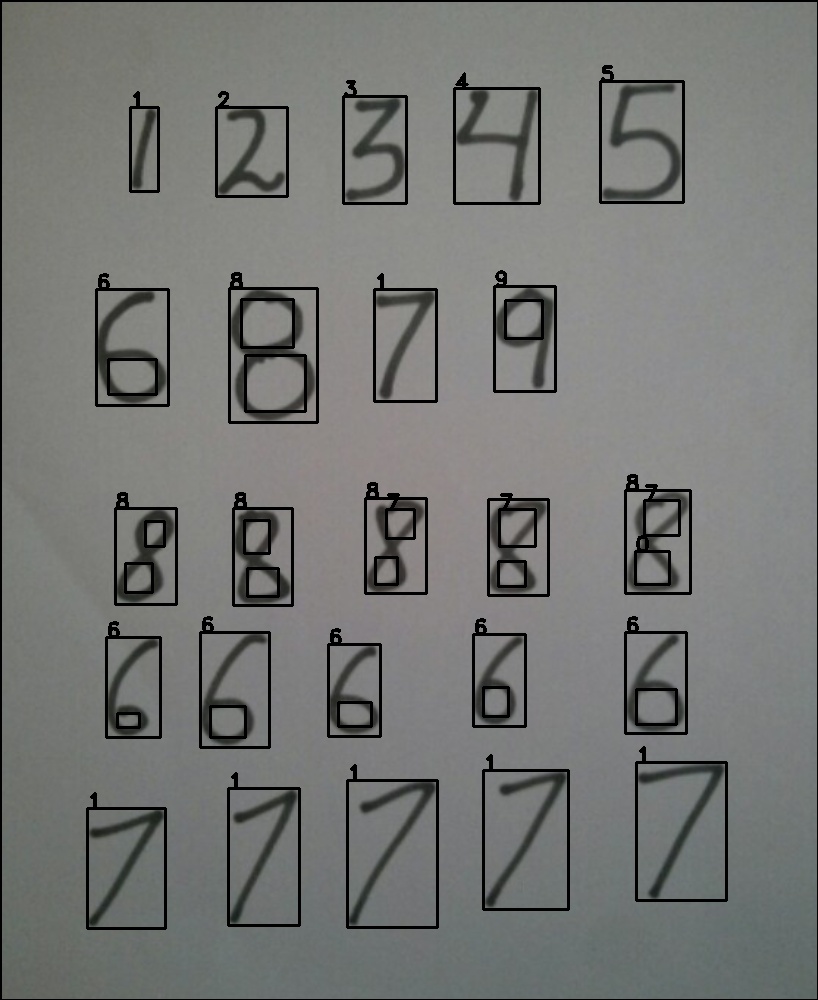 1 2 3 4 5
1 2 3 4 5
6 8 1 9
6 8 7 9
8 8 8 7 7 8 7
0
8 8 8 8 8
6 6 6 6 6
6 6 6 6 6
1 1 1 1 1
7 7 7 7 7